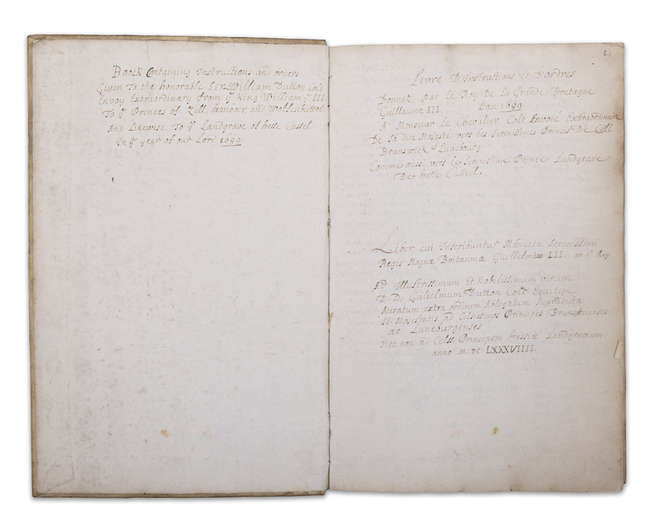 Book Containing Instructions and orders
Given to the honorable Sr William Dutton Colt
Envoy Extraordinary from ye King William III
To ye Princes of Zell Hanover and Wolfenbuttel
And Likewise To ye Landgrave of hesse Cassel
In ye year of our Lord 1689
Livre D'Instructions et D'ordres
Donnez par Le Roy de La Grande Bretagne
Guillaume III. 1689
A Monsieur Le Chevalier Colt Envoié Extraordinaire
De Sa Dte Majesté vers les Serenissimes Princes De Zell
Brunswick et Lunebourg
Comme aussi vers Le Serenissime Prince Landgrave
De hesse Cassel
Liber in Inscribuntur Serenissimi
Regis Magnæ Britanniæ Guillelmi III
Ad Illustrissimum et Nobilissimum virum
D. D. Gulielmum Dutton Colt Equitem
Auratum extra ordinem Ablegatum
ad Celsissimos Principes Brunsvicenses
ac Luneburgenses
Nec non ad Cels. Principem hessiæ Landgravium
anno M. DC LXXXVIIII.